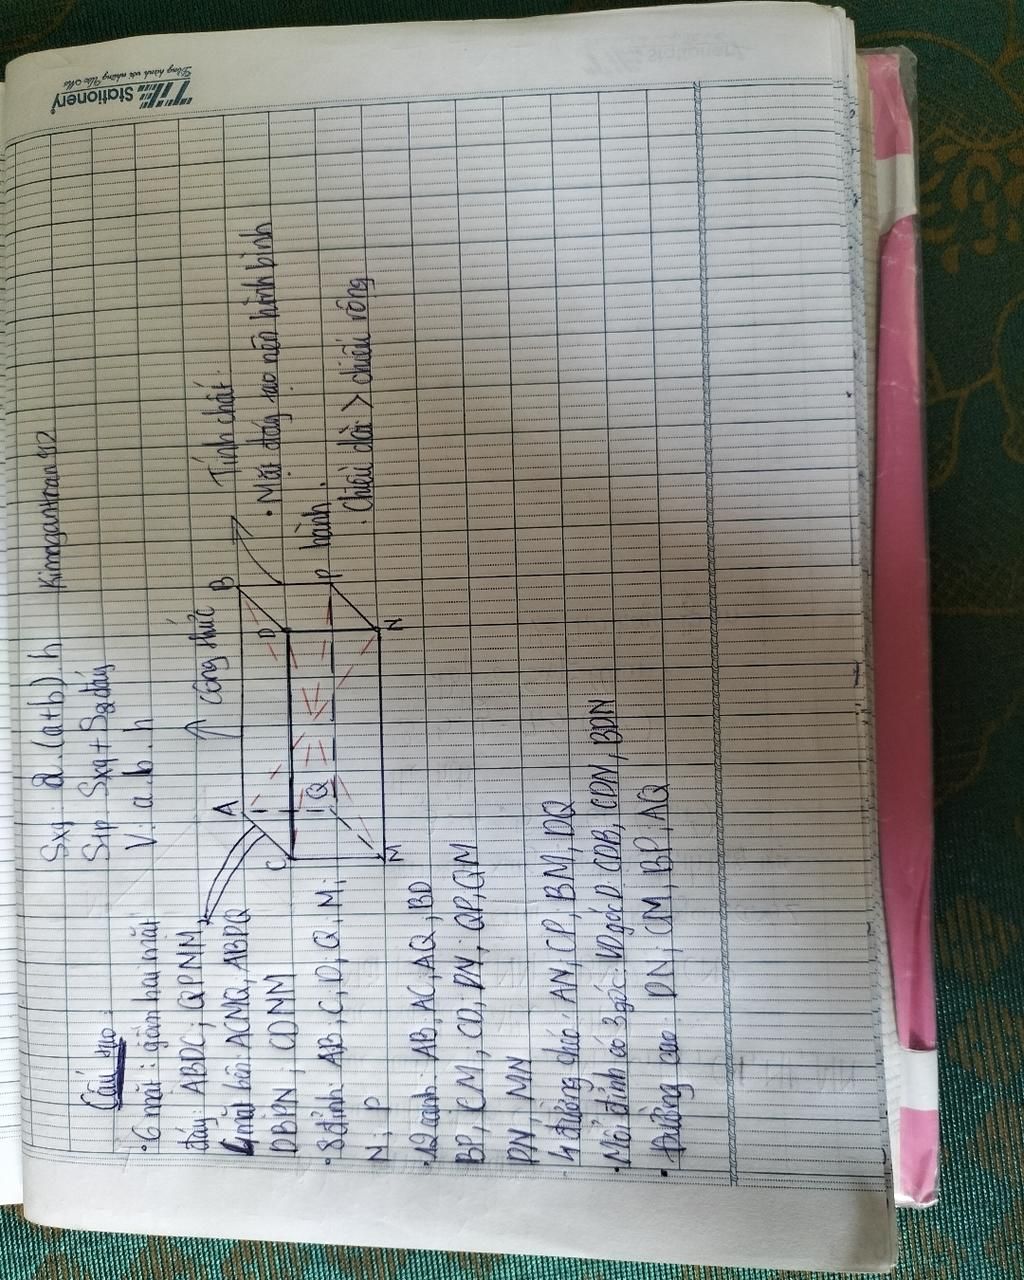 TH Stationery
Đồng hành với những Ước Mơ
Sxq: 2.(a+b).h
Kimngantoan12
Stp Sxq + S2đáy
V: a.b.h
Công thức
Cấu tạo:
• 6 mặt: gồm hai mặt
đáy: ABDC; QPNM
4 mặt bên: ACMQ, ABPQ
DBPN; CDNM
• 8 đỉnh: A, B, C, D, Q, M,
N, P
• 12 cạnh: AB, AC, AQ, BD
BP, CM, CD, DN, QP, QM
PN, MN
• 4 đường chéo: AN, CP, BM, DQ
• Mỗi đỉnh có 3 góc: VD góc D CDB, CDN, BDN
• Đường cao: DN, CM, BP, AQ
A
B
C
D
Q
P
M
N
Tính chất:
• Mặt đáy tạo nên hình bình
hành.
. Chiều dài > chiều rộng